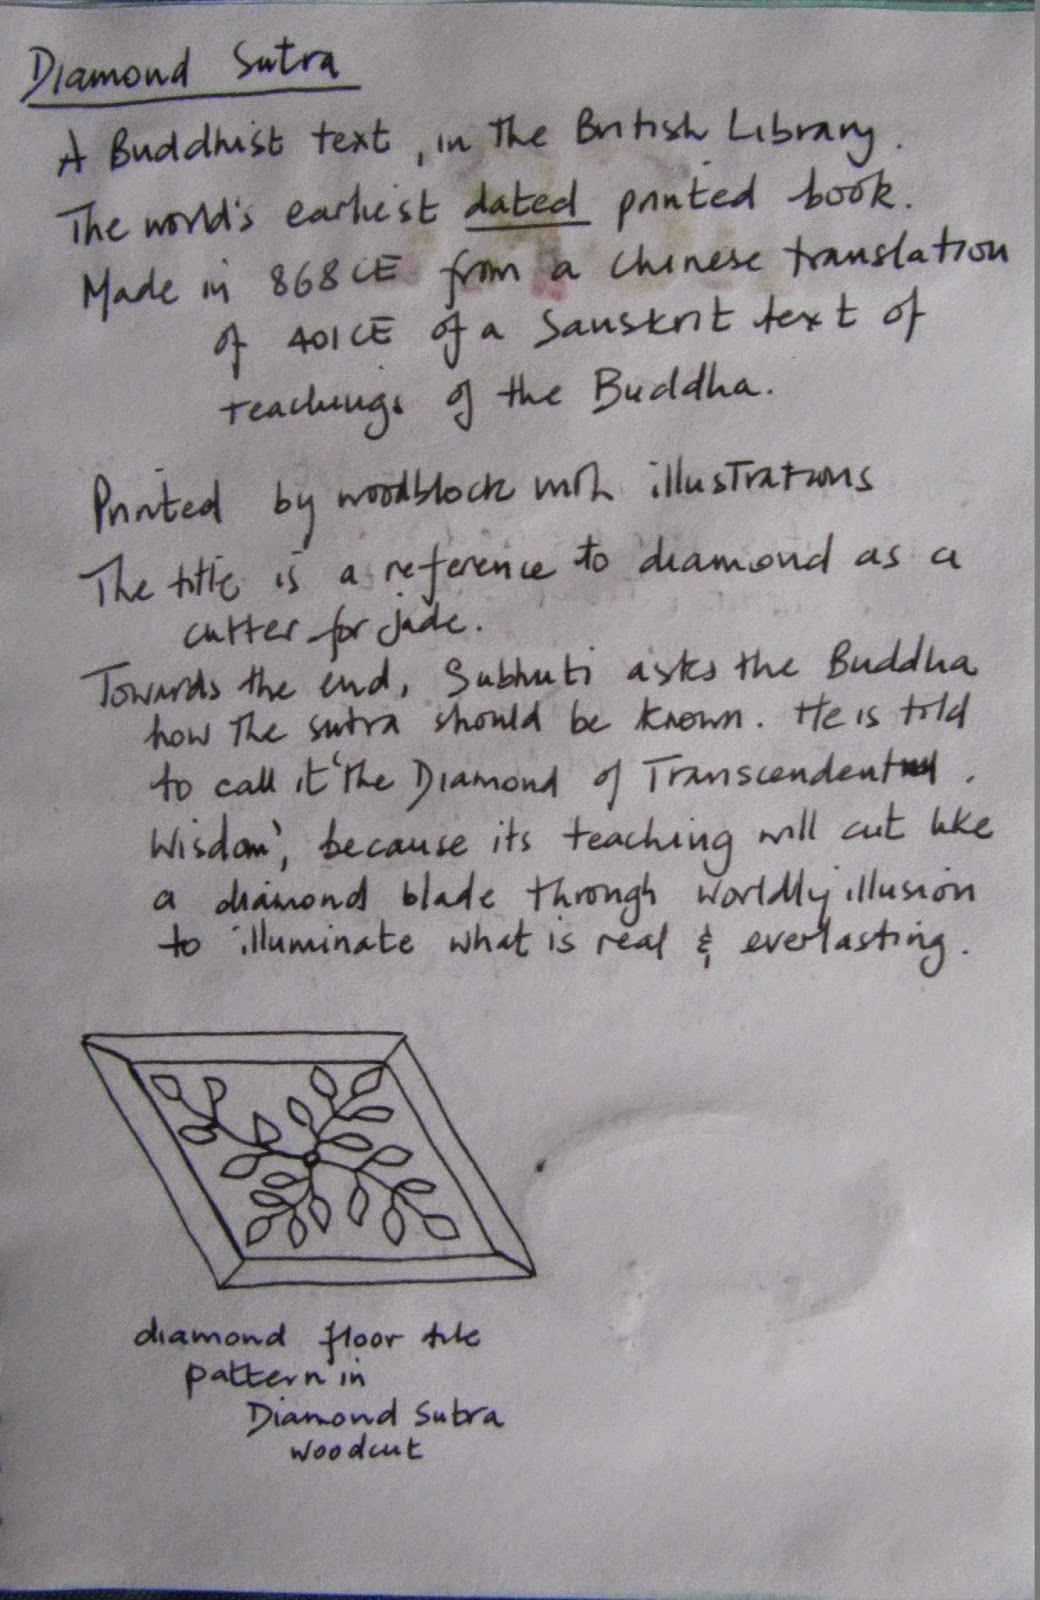 Diamond Sutra
A Buddhist text, in the British Library.
The world's earliest dated printed book.
Made in 868CE from a Chinese translation
of 401CE of a Sanskrit text of
teachings of the Buddha.
Printed by woodblock with illustrations
The title is a reference to diamond as a
cutter for jade.
Towards the end, Subhuti asks the Buddha
how the sutra should be known. He is told
to call it 'The Diamond of Transcendent
Wisdom', because its teaching will cut like
a diamond blade through worldly illusion
to illuminate what is real & everlasting.
diamond floor tile
pattern in
Diamond Sutra
woodcut